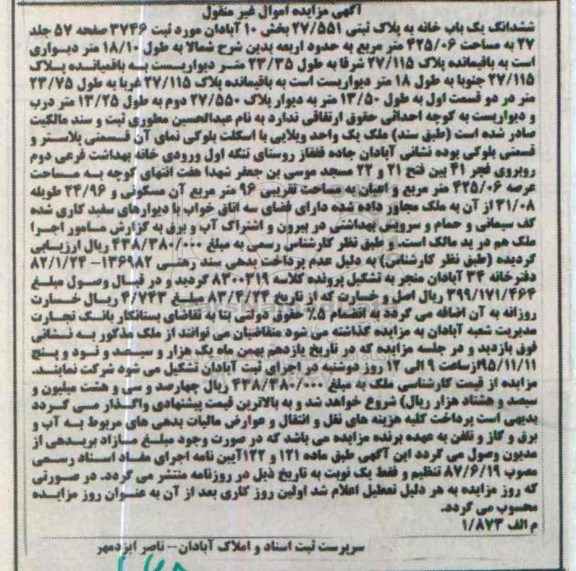 آگهی مزایده اموال غیر منقول
ششدانگ یک باب خانه به پلاک ثبتی ۲۷/۵۵۱ بخش ۱۰ آبادان مورد ثبت ۳۷۴۶ صفحه ۵۷ جلد
۲۷ به مساحت ۴۲۵/۰۶ متر مربع به حدود اربعه بدین شرح شمالا به طول ۱۸/۱۰ متر دیواری
است به باقیمانده پلاک ۲۷/۱۱۵ شرقا به طول ۲۳/۳۵ متر دیواریست به باقیمانده پلاک
۲۷/۱۱۵ جنوبا به طول ۱۸ متر دیواریست است به باقیمانده پلاک ۲۷/۱۱۵ غربا به طول ۲۳/۷۵
متر در دو قسمت اول به طول ۱۳/۵۰ متر به دیوار پلاک ۲۷/۵۵۰ دوم به طول ۱۳/۲۵ متر درب
و دیواریست به کوچه احداثی حقوق ارتفاقی ندارد به نام عبدالحسین مطوری ثبت و سند مالکیت
صادر شده است (طبق سند) ملک یک واحد ویلایی با اسکلت بلوکی نمای آن قسمتی پلاستر و
قسمتی بلوکی بوده نشانی آبادان جاده قفقاز روستای تنگه اول ورودی خانه بهداشت فرعی دوم
روبروی فجر ۴۱ بین فتح ۲۱ و ۲۲ مسجد موسی بن جعفر شهدا هفت انتهای کوچه به مساحت
عرصه ۴۲۵/۰۶ متر مربع و اعیان به مساحت تقریبی ۹۶ متر مربع آن مسکونی و ۲۴/۹۶ طویله
۳۱/۰۸ از آن به ملک مجاور داده شده دارای فضای سه اتاق خواب با دیوارهای سفید کاری شده
کف سیمانی و حمام و سرویس بهداشتی در بیرون و اشتراک آب و برق به گزارش مامور اجرا
ملک هم در ید مالک است. و طبق نظر کارشناس رسمی به مبلغ ۴۳۸/۳۸۰/۰۰۰ ریال ارزیابی
گردیده (طبق نظر کارشناس) به دلیل عدم پرداخت بدهی سند رهنی ۱۳۶۹۸۲- ۸۲/۱/۲۴
دفترخانه ۳۴ آبادان منجر به تشکیل پرونده کلاسه ۸۳۰۰۲۱۹ گردید و در قبال وصول مبلغ
۳۹۹/۱۷۱/۴۶۴ ریال اصل و خسارت که از تاریخ ۸۳/۳/۲۴ مبلغ ۴/۷۴۳ ریال خسارت
روزانه به آن اضافه می گردد به انضمام ۵٪ حقوق دولتی بنا به تقاضای بستانکار بانک تجارت
مدیریت شعبه آبادان به مزایده گذاشته می شود متقاضیان می توانند از ملک مذکور به نشانی
فوق بازدید و در جلسه مزایده که در تاریخ یازدهم بهمن ماه یک هزار و سیصد و نود و پنج
۹۵/۱۱/۱۱ از ساعت ۹ الی ۱۲ روز دوشنبه در اجرای ثبت آبادان تشکیل می شود شرکت نمایند.
مزایده از قیمت کارشناسی ملک به مبلغ ۴۳۸/۳۸۰/۰۰۰ ریال چهارصد و سی و هشت میلیون و
سیصد و هشتاد هزار ریال) شروع خواهد شد و به بالاترین قیمت پیشنهادی واگذار می گردد
بدیهی است پرداخت کلیه هزینه های نقل و انتقال و عوارض مالیات بدهی های مربوط به آب و
برق و گاز و تلفن به عهده برنده مزایده می باشد که در صورت وجود مبلغ مازاد بر بدهی از
مدیون وصول می گردد این آگهی طبق ماده ۱۲۱ و ۱۲۲ آیین نامه اجرای مفاد اسناد رسمی
مصوب ۸۷/۶/۱۹ تنظیم و فقط یک نوبت به تاریخ ذیل در روزنامه منتشر می گردد. در صورتی
که روز مزایده به هر دلیل تعطیل اعلام شد اولین روز کاری بعد از آن به عنوان روز مزایده
محسوب می گردد.
م الف ۱/۸۷۳
سرپرست ثبت اسناد و املاک آبادان – ناصر ایزدمهر